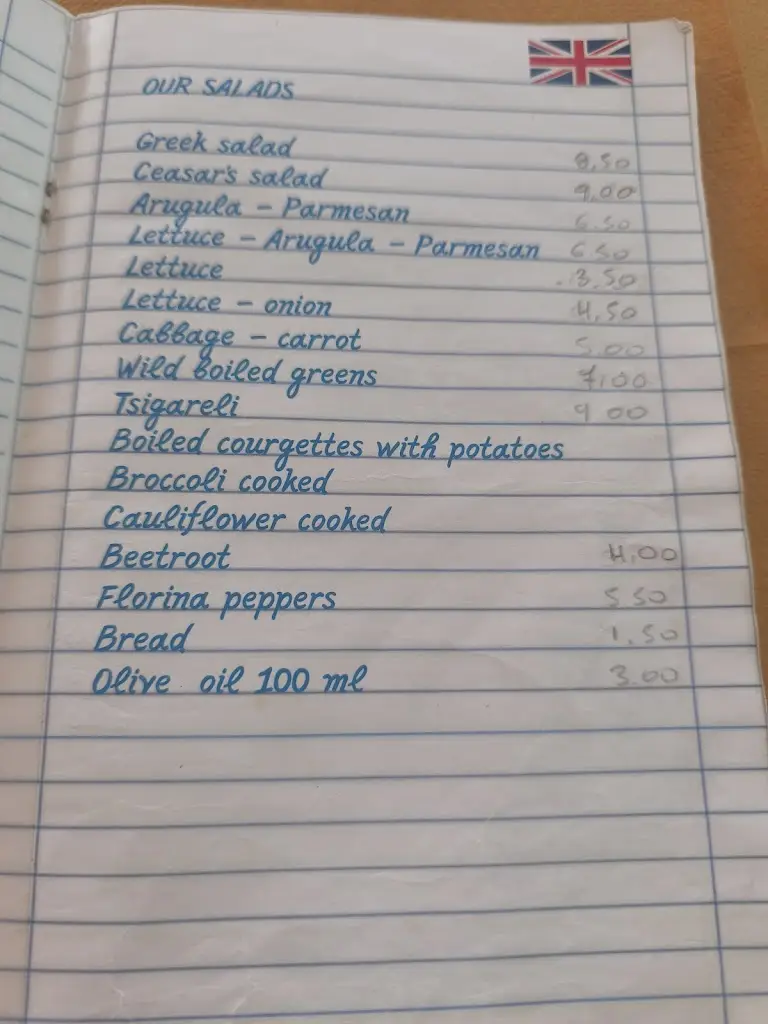 OUR SALADS
Greek salad 8,50
Ceasar's salad 9,00
Arugula - Parmesan 6.50
Lettuce - Arugula - Parmesan 6 50
Lettuce 3,50
Lettuce - onion 4,50
Cabbage - carrot 5.00
Wild boiled greens 7,00
Tsigareli 9 00
Boiled courgettes with potatoes
Broccoli cooked
Cauliflower cooked
Beetroot 4,00
Florina peppers 5 50
Bread 1,50
Olive oil 100 ml 3.00